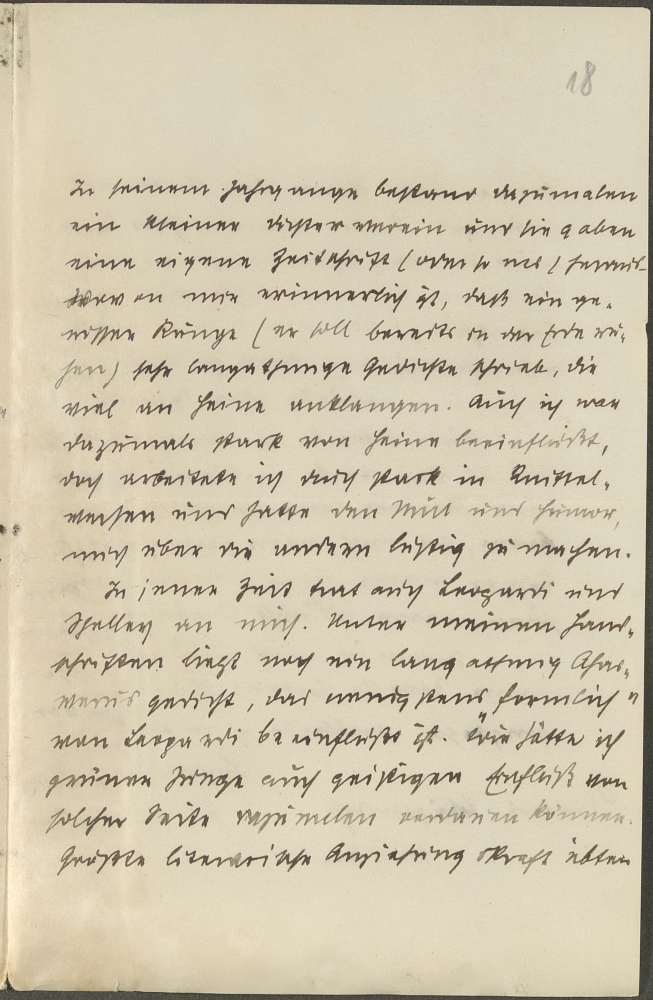 18
In seinem Jahrgange bestand dazumalen
ein kleiner Dichterverein und sie gaben
eine eigene Zeitschrift (oder so was) heraus
wovon mir erinnerlich ist, daß ein ge-
wisser Runge (er soll bereits in der Erde ru-
hen) sehr langathmige Gedichte schrieb, die
viel an Heine anklangen. Auch ich war
dazumals stark von Heine beeinflußt,
doch arbeitete ich auch stark in Knittel-
versen und hatte den Mut und Humor,
mich über die andern lustig zu machen.
In jener Zeit trat auch Leopardi und
Shelley an mich. Unter meinen Hand-
schriften liegt noch ein langatmig Ahas-
verusgedicht, das wenigstens „formlich“
von Leopardi beeinflußt ist. Wie hätte ich
grüner Junge auch geistigen Einfluß von
solcher Seite dazumalen verdauen können.
Größte literarische Anziehungskraft übten